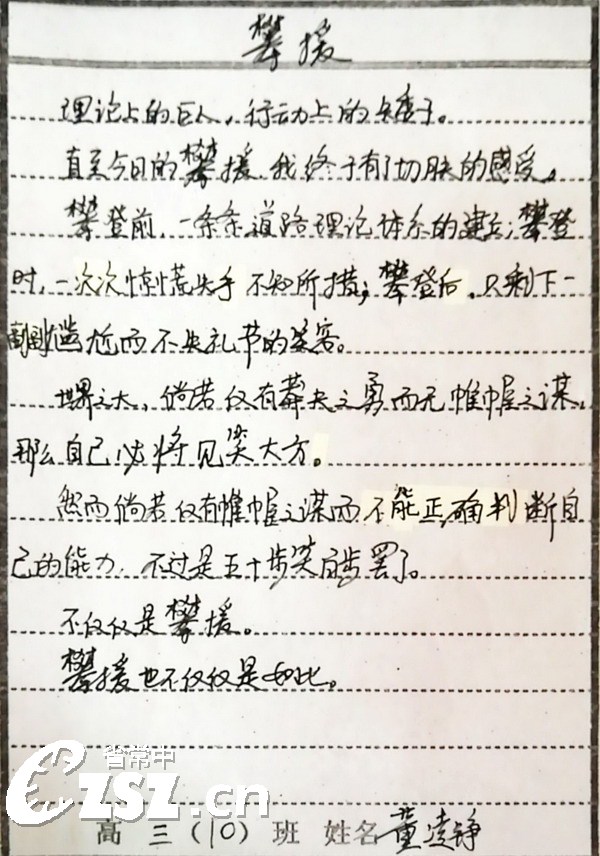 攀援
理论上的巨人，行动上的矮子。
直至今日的攀援，我终于有了切肤的感受。
攀登前，一条条道路理论体系的建立；攀登
时，一次次惊慌失手不知所措；攀登后，只剩下一
副副尴尬而不失礼节的笑容。
世界之大，倘若仅有莽夫之勇而无帷幄之谋，
那么自己必将见笑大方。
然而倘若仅有帷幄之谋而不能正确判断自
己的能力，不过是五十步笑百步罢了。
不仅仅是攀援。
攀援也不仅仅是如此。
省常中
CZSZ.cn
高三(10)班 姓名 董凌铮